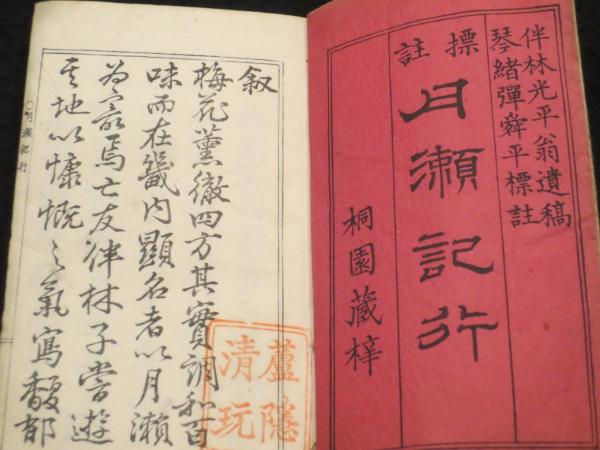 伴林光平翁遺稿
琴緒彈舜平標註
標註
月瀬記行
桐園蔵梓
叙
梅花薫徹四方其實調和百
味而在畿内顯名者以月瀬
為最焉亡友伴林子嘗遊
其地以慷慨之氣寫馥郁
蘆隠
清玩
月瀬記行